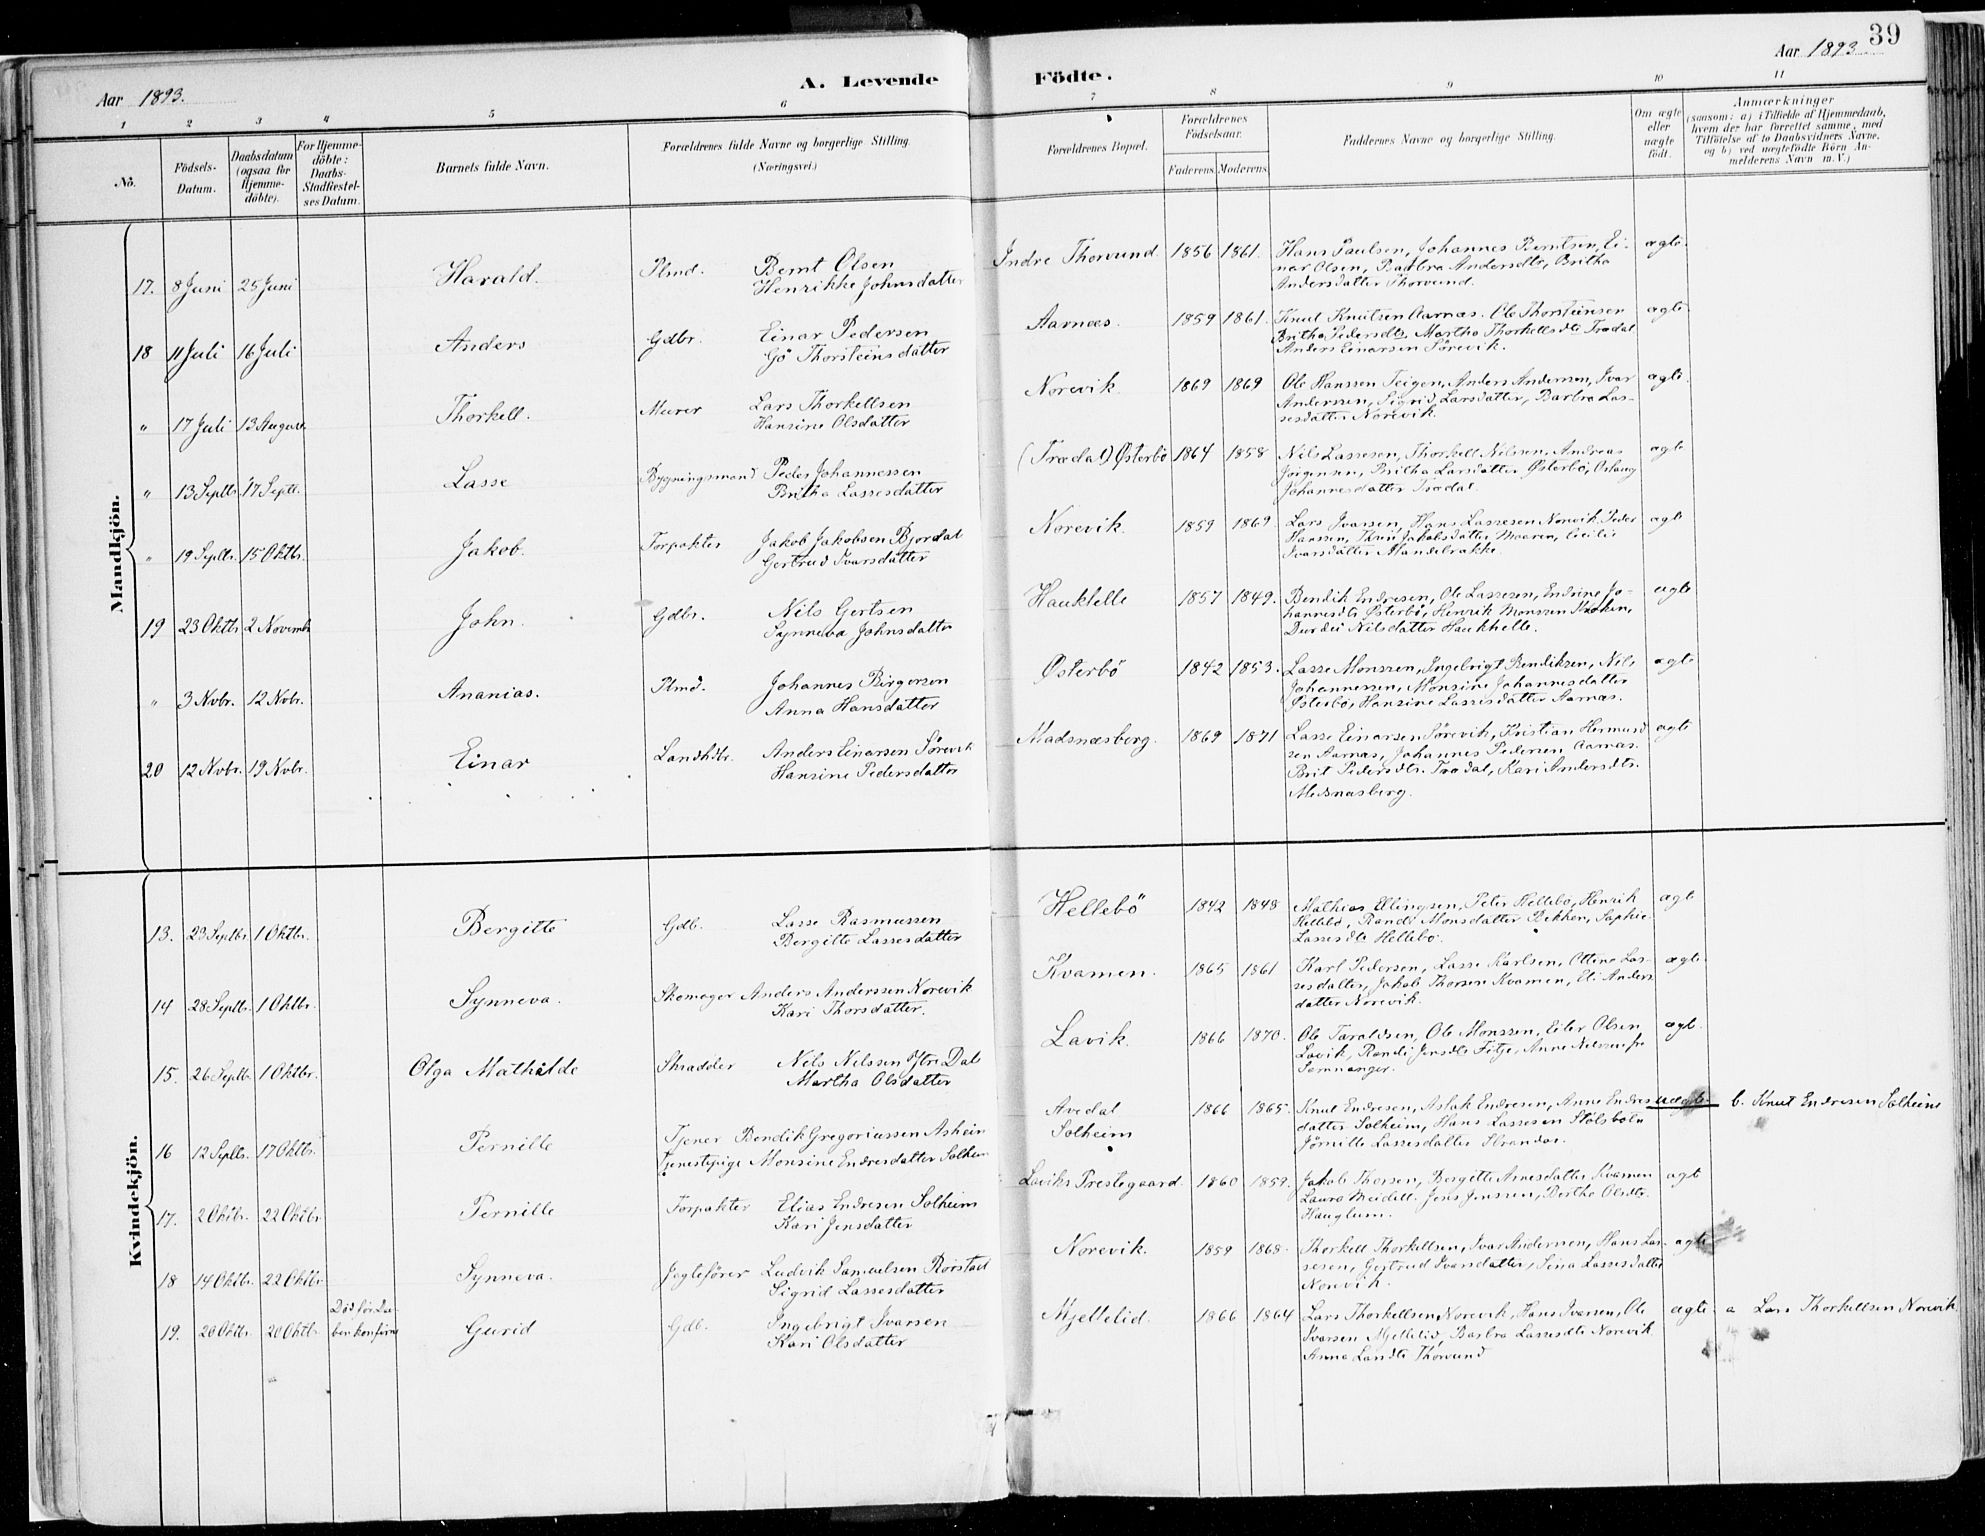 39
Aar 1893.
A. Levende Födte.
Aar 1893.
1 2 3 4 5 6 7 8 9 10 11
No.
Födsels-Datum.
Daabsdatum (ogsaa for Hjemme-döbte).
For Hjemme-döbte: Daabs-Stadfæstel-ses Datum.
Barnets fulde Navn.
Forældrenes fulde Navne og borgerlige Stilling. (Næringsvei.)
Forældrenes Bopæl.
Forældrenes Födselsaar.
Faderens Moderens
Faddernes Navne og borgerlige Stilling.
Om ægte eller uægte födt.
Anmærkninger
(saasom: a) i Tilfælde af Hjemmedaab,
hvem der har forrettet samme, med
Tilföielse af to Daabsvidners Navne.
og b) ved uægtefödte Börn An-
melderens Navn m. V.)
Mandkjön.
17. 8 Juni 25 Juni Harald. Plmd. Bernt Olsen
Henrikke Johnsdatter
Indre Thorvund 1856 1861. Hans Paulsen, Johannes Berntsen, Ei-
nar Olsen, Barbra Andersdtr, Britha
Andersdatter Thorvund. ægte.
18 11 Juli 16 Juli Anders Gdbr. Einar Pedersen
Gö Thorsteinsdatter
Aarnæs. 1859 1861. Knut Knutsen Aarnæs. Ole Thorsteinsen
Britha Pedersdtr, Martha Thorkellsdtr Trædal
Anders Einarsen Sørevik. ægte
" 17 Juli 13 August Thorkell. Murer Lars Thorkellsen
Hansine Olsdatter
Norevik. 1869 1869 Ole Hanssen Teigen, Anders Andersen, Ivar
Anderssen, Sigrid Larsdatter, Barbra Las-
sesdatter Norevik. ægte.
" 13 Septbr 17 Septr. Lasse Bygningsmand Peder Johannessen
Britha Lassesdatter
(Trædal) Østerbö 1864 1858 Nils Lassesen, Thorkell Nilsen, Andreas
Jørgensen, Britha Larsdatter Østerbö, Oslaug
Johannesdatter Trædal. ægte
" 19 Septbr. 15 Oktbr. Jakob. Forpakter Jakob Jakobsen Bjordal
Gertrud Ivarsdatter
Norevik. 1859 1869. Lars Ivarsen, Hans Lassesen Norevik, Peder
Hansen, Thrin Jakobsdatter Maaren, Cecilie
Ivarsdatter ægte
19 23 Oktbr 2 Novembr John. Gdbr. Nils Gertsen
Synneva Johnsdatter
Hauktelle 1857 1849. Bendik Endresen, Ole Lassesen, Endrine Jo-
hannesdtr Østerbö, Henrik Monssen
Durdei Nilsdatter Haukhelle. ægte
" 3 Nvbr. 12 Nvbr. Ananias. Plmd. Johannes Birgerson
Anna Hansdatter
Østerbö 1842 1853. Lasse Monssen, Ingebrigt Bendiksen, Nils
Johannessen, Monsine Johannesdatter
Østerbö, Hansine Lassesdatter Aarnæs. ægte
20 12 Nvbr. 19 Nvbr. Einar Landhdbr. Anders Einarsen Sørevik
Hansine Pedersdatter
Madsnæsberg. 1869 1871 Lasse Einarsen Sørevik, Kristian Hermund
sen Aarnæs, Johannes Pedersen Aarnæs.
Brit Pedersdtr. Trædal, Kari Andersdtr.
Madsnæsberg. ægte
Kvindekjön.
13. 23 Septbr. 1 Oktbr. Bergitte Gdb. Lasse Rasmussen
Bergitte Lassesdatter
Hellebö 1842 1848 Mathias Ellingsen, Peter Hellebö, Henrik
Hellebö, Randi Monsdatter Bekken, Sophie
Lassesdtr Hellebö. ægte
14 28 Septbr. 1 Oktbr. Synneva. Skomager Anders Anderssen Norevik
Kari Thorsdatter.
Kvamen. 1865 1861 Karl Pedersen, Lasse Karlsen, Ottine Las-
sesdatter, Jakob Thorsen Kvamen, Eli Anders
datter Norevik. ægte.
15. 26 Septb. 1 Oktbr. Olga Mathilde Skradder Nils Nilssen Ytre Dal
Martha Olsdatter
Lavik. 1866 1870. Ole Taraldsen, Ole Monssen, Eiler Olsen
Lavik, Randi Jensdtr Fitje, Anne Nilssen fra
Samnanger. ægte.
16 12 Septbr. 17 Oktbr. Pernille Tjener Bendik Gregoriussen Asheim
Tjenestepige Monsine Endresdatter Solheim
Avedal
Solheim 1866 1865. Knut Endresen, Aslak Endresen, Anne Endres
datter Solheim, Hans Lassesen Stölsbotn
Jørnille Lassesdatter Strandos. uægte. b. Knut Endresen Solheim
17. 2 Oktbr. 22 Oktbr. Pernille Forpakter Elias Endresen Solheim
Kari Jensdatter
Laviks Prestegaard 1860 1859. Jakob Thorsen, Bergitte Arnesdatter Kvamen
Laura Meidell. Jens Jenssen, Berthe Olsdtr.
Hauglum. ægte
18 14 Oktbr. 22 Oktbr. Synneva. Jægtefører Ludvik Samuelsen Rörstad
Sigrid Lassesdatter
Norevik. 1859 1868. Thorkell Thorkellsen, Ivar Andersen, Hans Las-
sesen, Gertrud Ivarsdatter, Sina Lassesdatter
Norevik. ægte
19. 20 Oktbr. 20 Oktbr. Död för Daa-
ben konfirm. Gurid Gdb. Ingebrigt Ivarsen
Kari Olsdatter
Mjellelid. 1866 1864 Lars Thorkellsen Norevik, Hans Ivarsen, Ole
Ivarsen Mjellelid, Barbra Lassesdtr Norevik
Anna Larsdtr Thorvund ægte. a Lars Thorkellsen Norevik